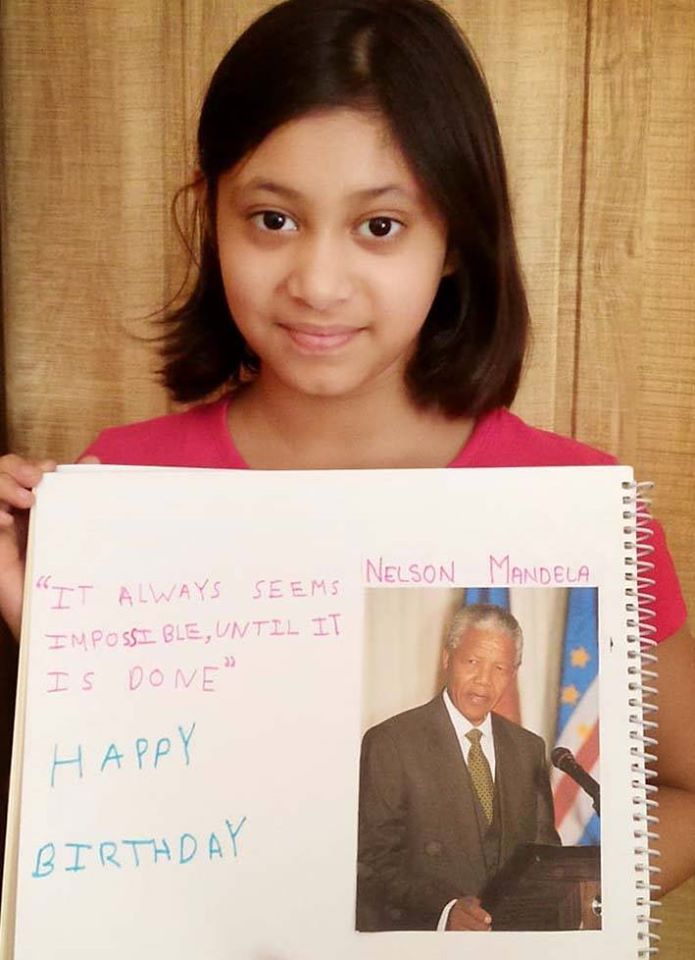 NELSON MANDELA
"IT ALWAYS SEEMS
IMPOSSIBLE, UNTIL IT
IS DONE"
HAPPY
BIRTHDAY